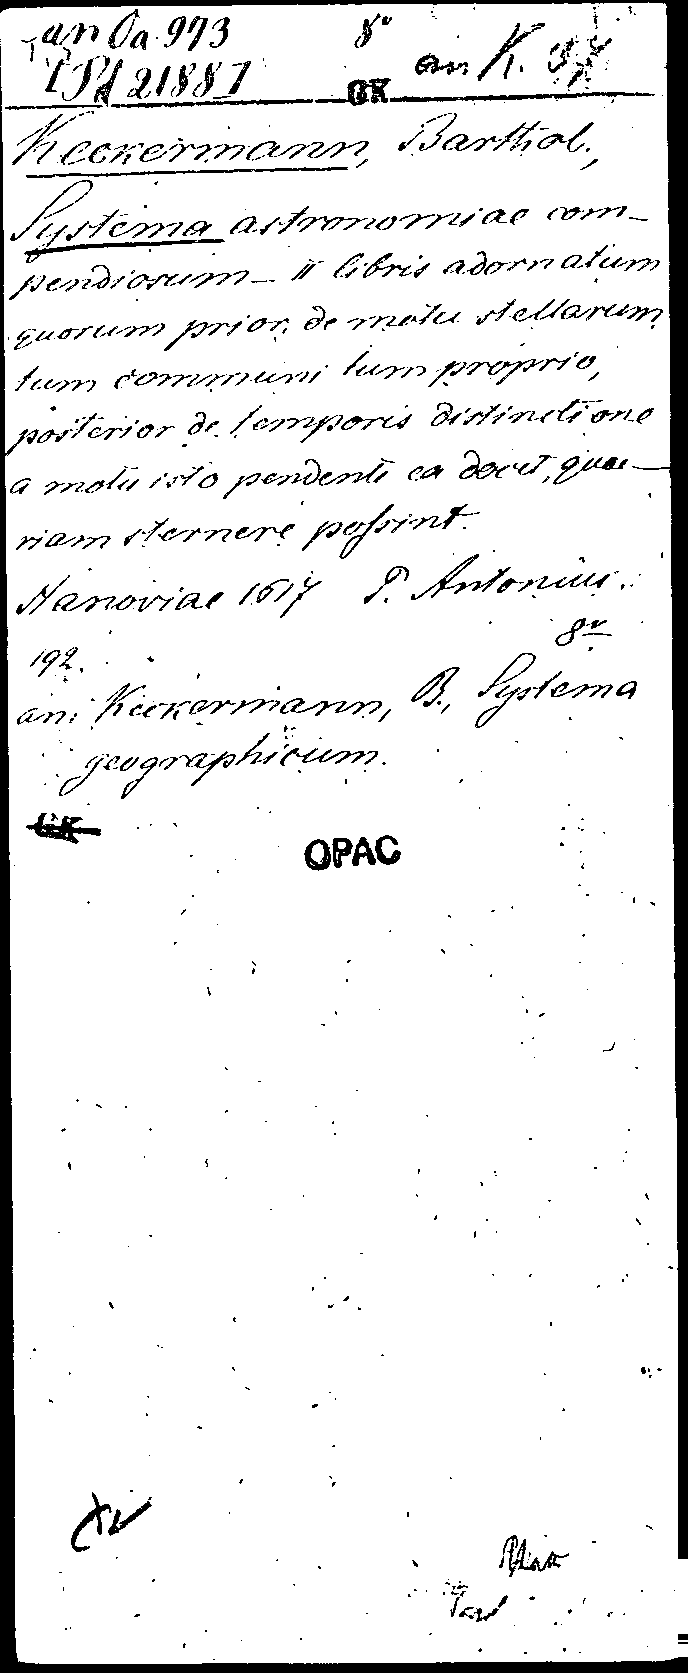 an Oa 973 8° an K.
21887 GK
Keckermann, Barthol.,
Systema astronomiae com-
pendiosum - II libris adornatum
quorum prior de motu stellarum
tum communi tum proprio,
posterior de temporis distinctione
a motu isto pendente ea docet, quae
viam sternere possint.
Hanoviae 1617 P. Antonius.
8°
192.
an: Keckermann, B., Systema
geographicum.
GK
OPAC